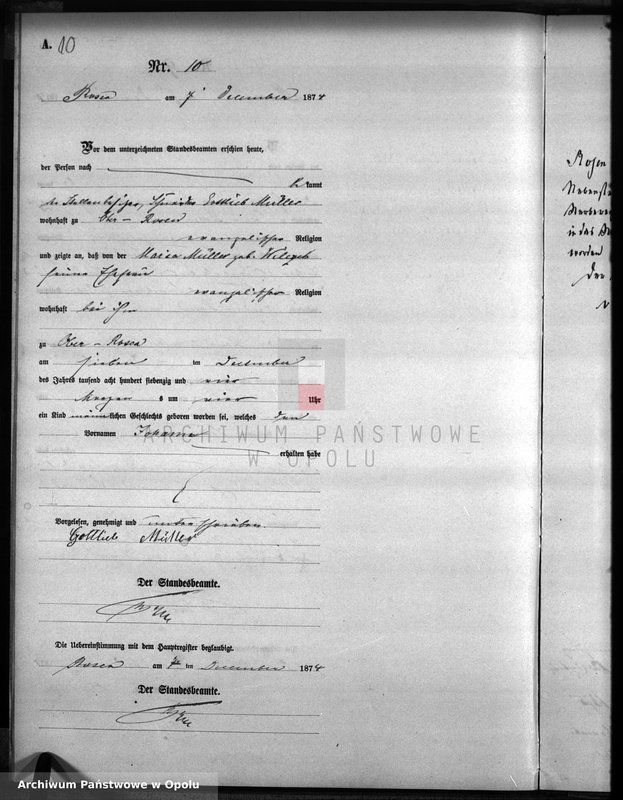 A. 10
Nr. 10
Rosen am 7' December 1874
Vor dem unterzeichneten Standesbeamten erschien heute,
der Person nach
kannt
der Stellenbesitzer, Gottlieb Müller
wohnhaft zu Ober-Rosen
evangelischer Religion
und zeigte an, daß von der Maria Müller geb.
seiner Ehefrau
evangelischer Religion
wohnhaft bei ihm
zu Ober-Rosen
am sieben ten December
des Jahrs tausend acht hundert siebenzig und vier
Morgen s um vier Uhr
ein Kind männlichen Geschlechts geboren worden sei, welches den
Vornamen Johann
erhalten habe
Vorgelesen, genehmigt und unterschrieben
Gottlieb Müller
Der Standesbeamte.
Die Uebereinstimmung mit dem Hauptregister beglaubigt.
Rosen am 7 ten December 1874
Der Standesbeamte.
Rosen
in das
worden
ARCHIWUM PAŃSTWOWE
W OPOLU
Archiwum Państwowe w Opolu